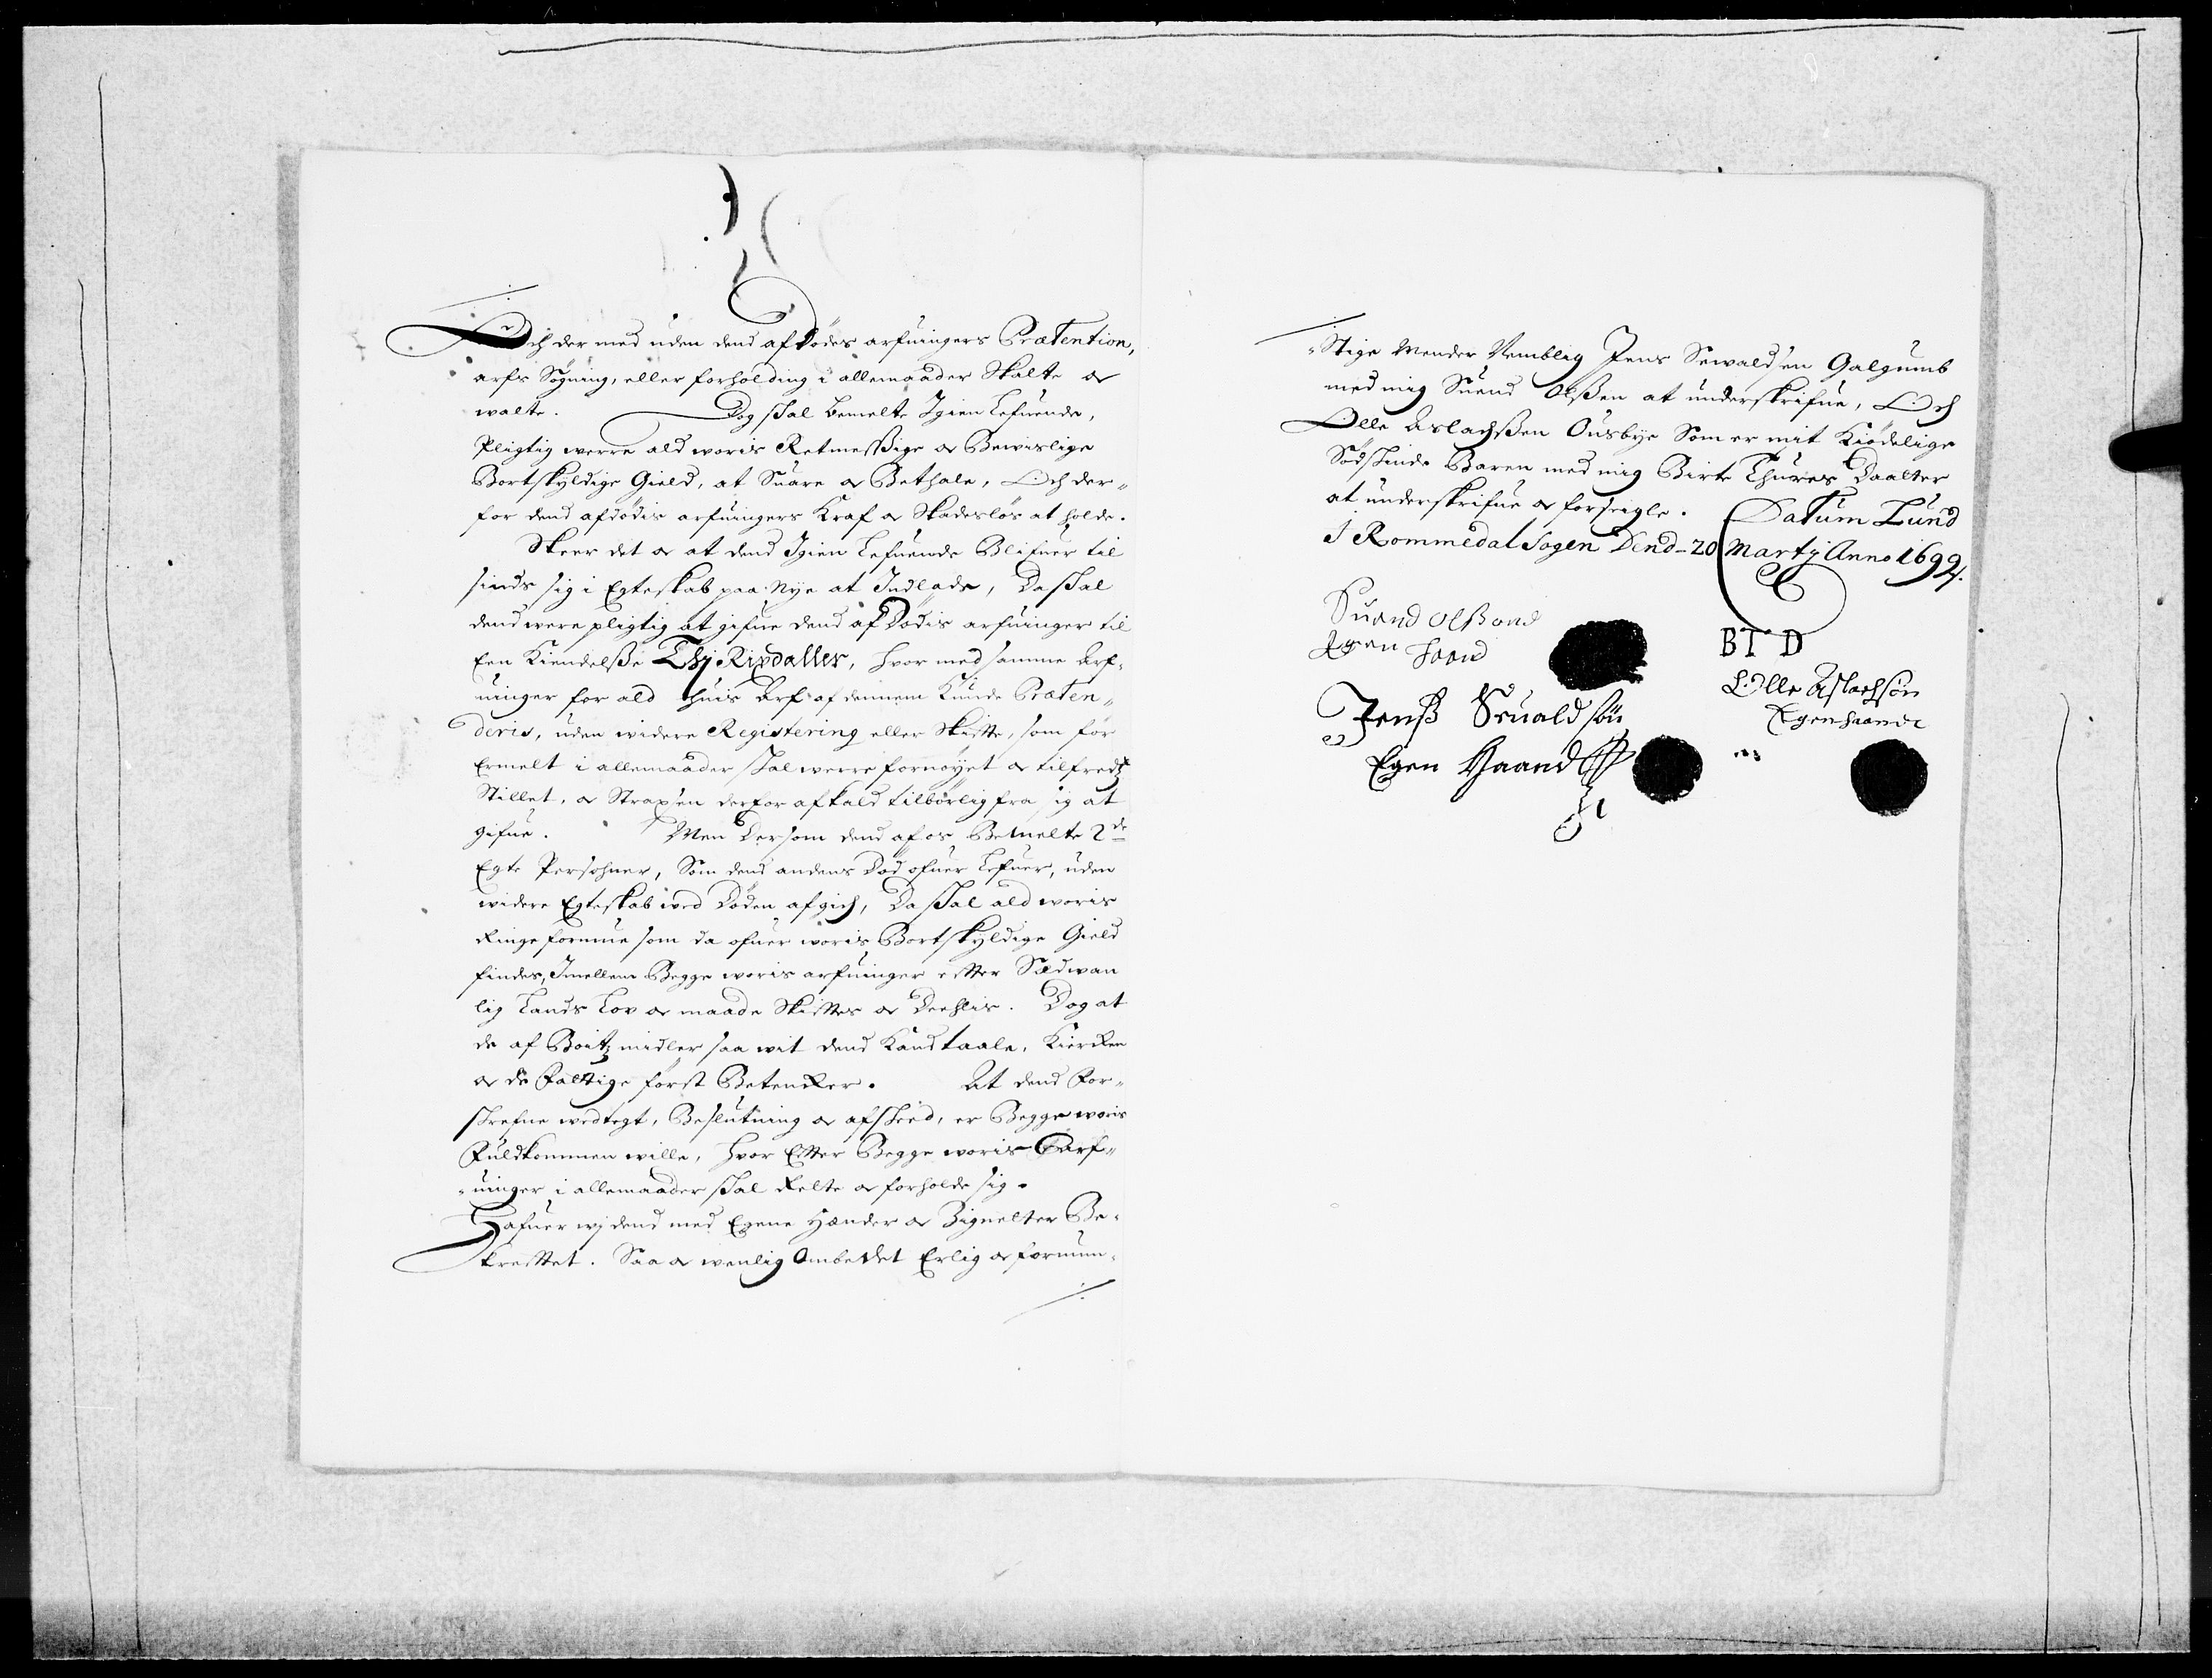 Och der med uden dend afdödes arfuingers Prætention,
arfs Sögning, eller forholding i allemaader Skalte oc
walte. Dog skal bemelte Igien lefuende,
Pligtig werre ald woris Retmessige oc Bewislige
Bortskyldige Gield, at Suare oc Bethale, Och der-
for dend afdödis arfuingers Kraf oc Skadeslös at holde.
Skeer det oc at dend Igien lefuende Blifuer til
sinds sig i Egteskab paa Nye at Indlade, Da skal
dend were pligtig at gifue dend afDödis arfuinger til
Een Kiendelsse Thj Rixdaller, hvor med samme Arf-
uinger for ald thuis Arf af dennem Kunde Præten-
deris, uden widere Registering eller Skiffte, som för
Ermelt i allemaader skal werre fornöyet oc tilfredtz
Stillet, oc Strax en derfor afkald tilbørlig fra sig at
gifue. Men Dersom dend af os Bemelte 2de
Egte Persohner, Som dend andens Död ofuer lefuer, uden
widere Egteskab wed Döden afgich, Da skal ald woris
Ringe formue som da ofuer woris Bortskyldige Gield
findes, Imellem Begge woris arfuinger effter Sædwan
lig Lands Lov oc maade Skifftes oc Deehlis. Dog at
de af Boitz midler saa wit dend Kand taale, Kiercken
oc de Fattige först Betencker. At dend For-
skrefne wedtegt, Beslutning oc afskeed, er Begge woris
Fuldkommen wille, hvor Effter Begge woris Carf-
-uinger i allemaader skal Rette oc forholde sig.
Hafuer wj dend med Egene Hænder oc Zigneter Be-
krefftet. Saa oc wenlig Ombedet Erlig oc fornum-
-Stige Mender Nemblig Jens Sewaldsen Galgumb
med mig Suend Olssen at underskrifue, Och
Olle Aslachssen Ousbye Som er mit Kiödelige
Södskinde Baren med mig Birte Thures Daatter
at underskrifue oc forseigle. Datum Lund
I Rommedal Sogen Dend 20 Martj Anno 1699.
Suend Olssend
Egen haand
BT D
Olle Aslachsön
Egen haande
Jenss Seualdsön
Egen Haand